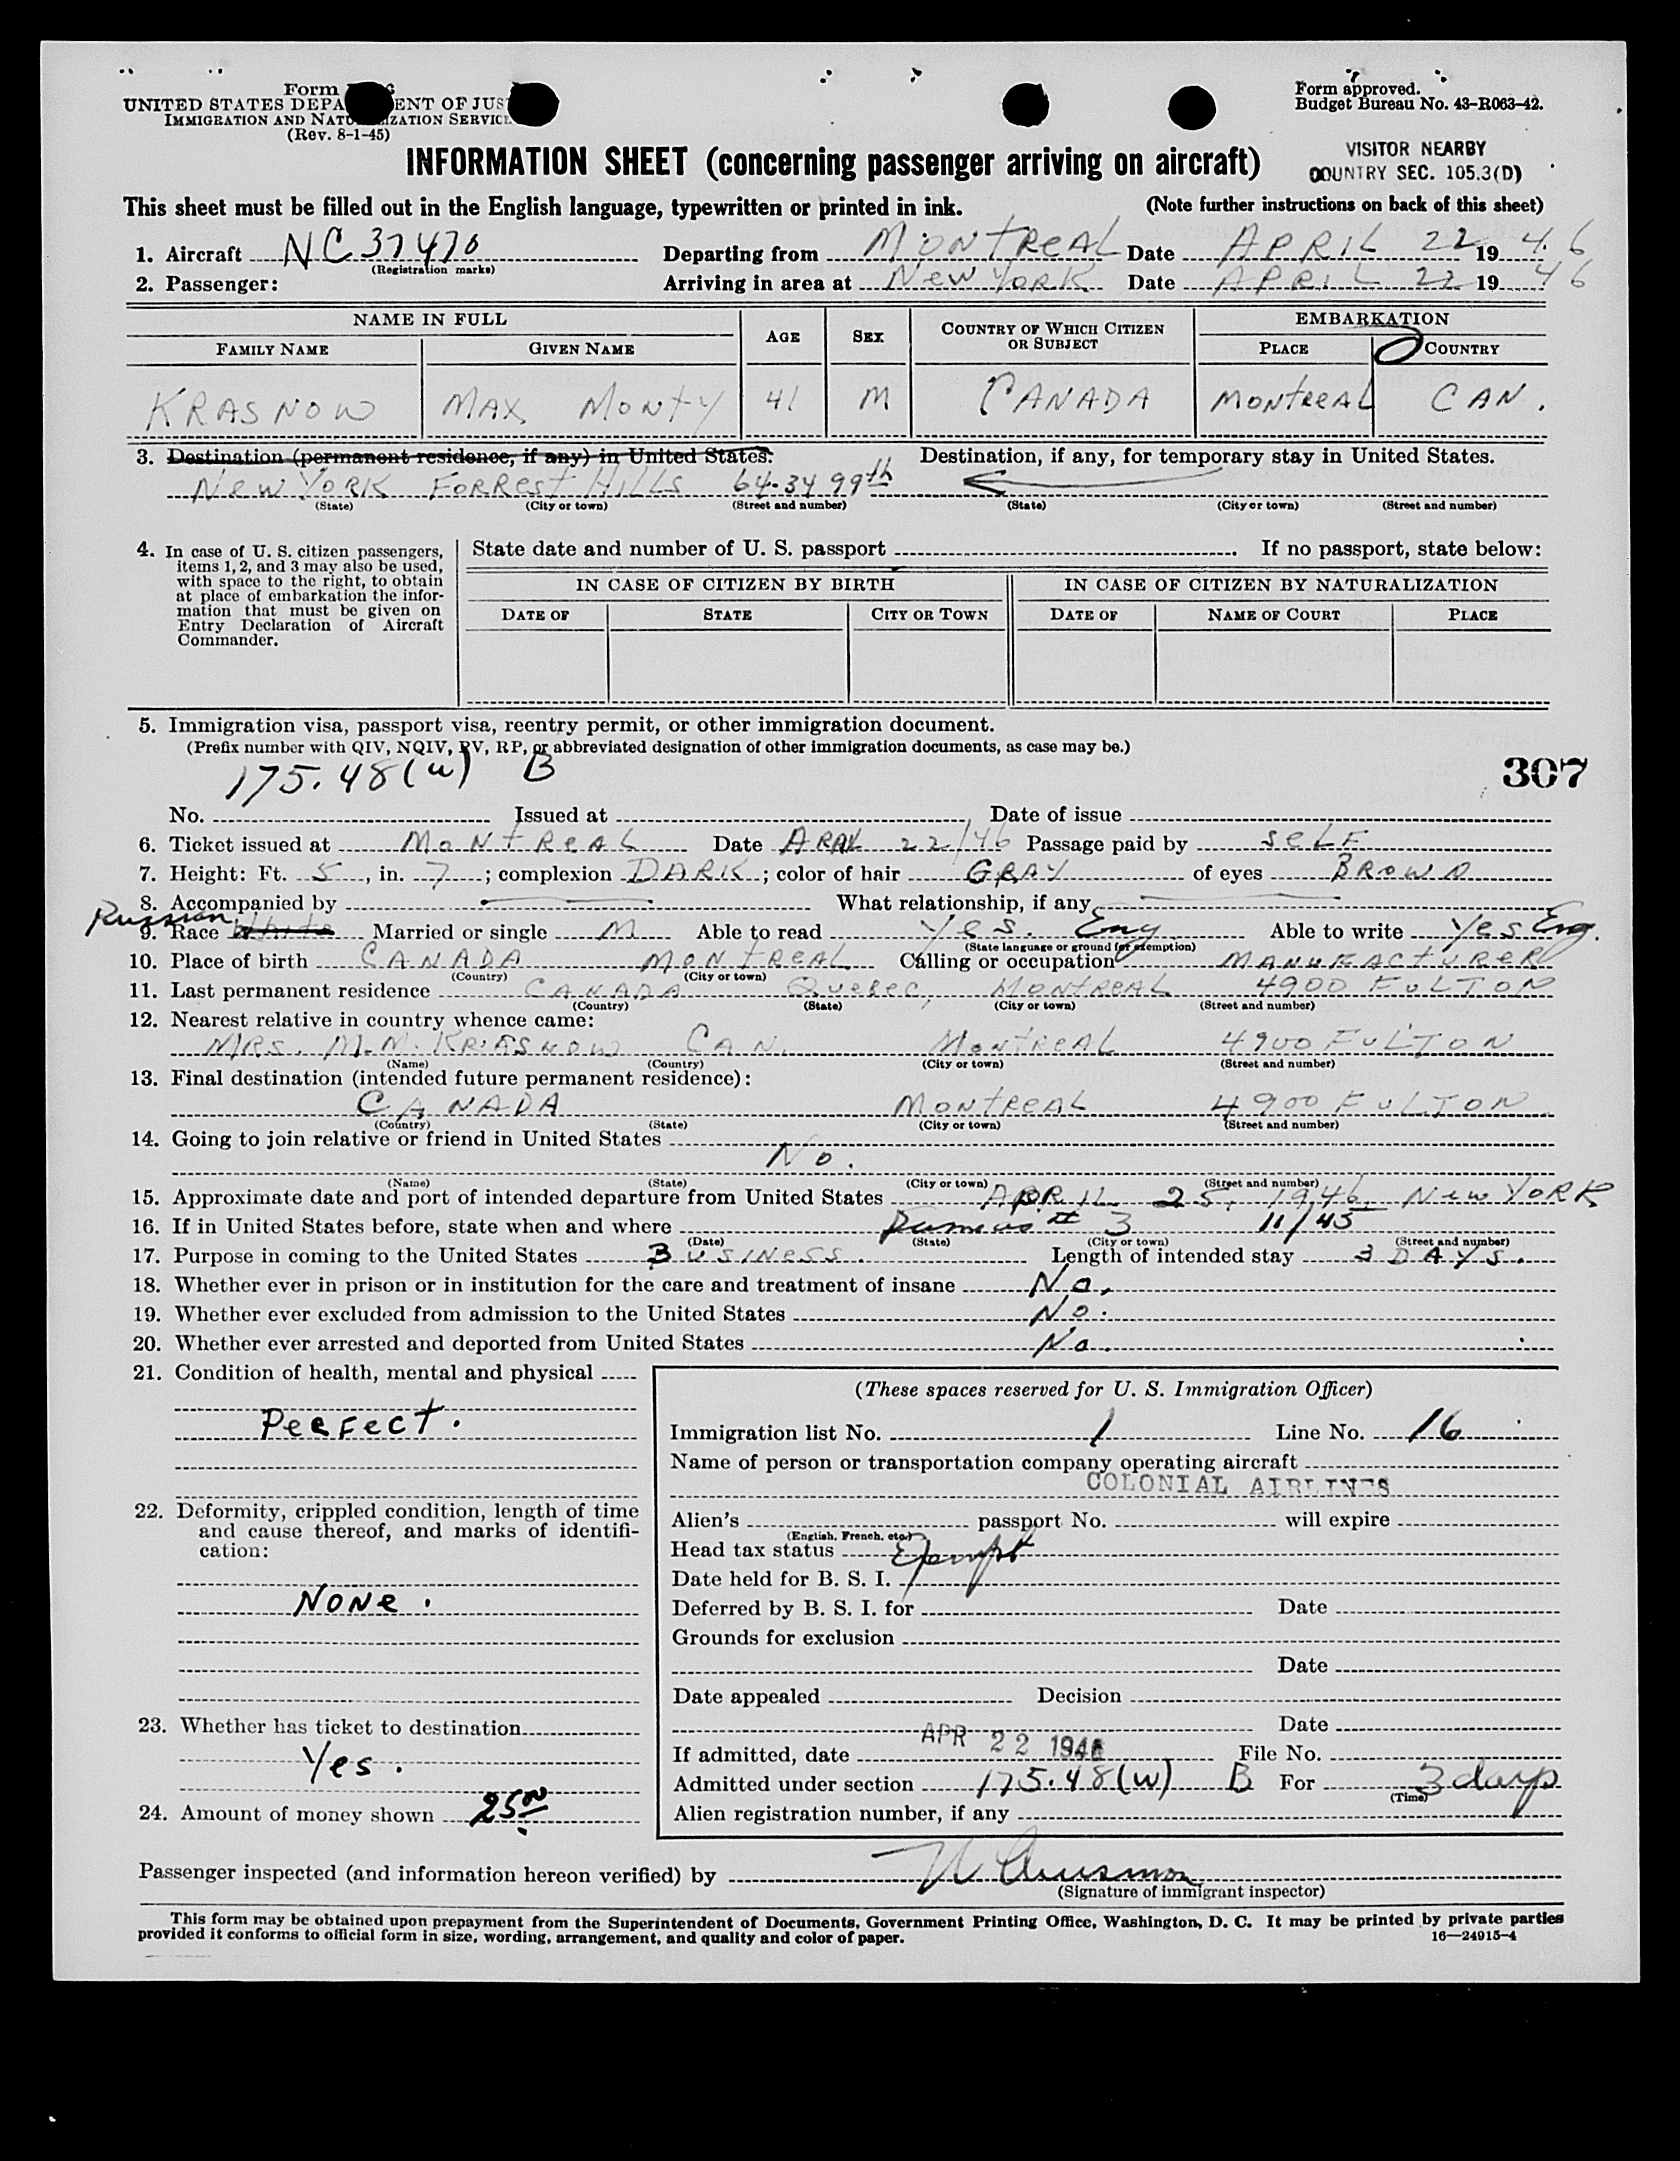 Form
UNITED STATES DEPA ENT OF JUS
IMMIGRATION AND NATU IZATION SERVICE
(Rev. 8-1-45)
Form approved.
Budget Bureau No. 43-R063-42.
INFORMATION SHEET (concerning passenger arriving on aircraft)
VISITOR NEARBY
COUNTRY SEC. 105.3(D)
This sheet must be filled out in the English language, typewritten or printed in ink. (Note further instructions on back of this sheet)
1. Aircraft NC 37470 Departing from MONTREAL Date APRIL 22 1946
(Registration marks)
2. Passenger: Arriving in area at NEW YORK Date APRIL 22 1946
NAME IN FULL AGE SEX COUNTRY OF WHICH CITIZEN OR SUBJECT EMBARKATION
FAMILY NAME GIVEN NAME PLACE COUNTRY
KRASNOW MAX MONTY 41 M CANADA MONTREAL CAN.
3. Destination (permanent residence, if any) in United States: Destination, if any, for temporary stay in United States.
NEW YORK FORREST HILLS 64-34 99th
(State) (City or town) (Street and number) (State) (City or town) (Street and number)
4. In case of U. S. citizen passengers, items 1, 2, and 3 may also be used, with space to the right, to obtain at place of embarkation the information that must be given on Entry Declaration of Aircraft Commander.
State date and number of U. S. passport . If no passport, state below:
IN CASE OF CITIZEN BY BIRTH IN CASE OF CITIZEN BY NATURALIZATION
DATE OF STATE CITY OR TOWN DATE OF NAME OF COURT PLACE
5. Immigration visa, passport visa, reentry permit, or other immigration document.
(Prefix number with QIV, NQIV, PV, RP, or abbreviated designation of other immigration documents, as case may be.)
175.48(w) B
307
No. Issued at , Date of issue
6. Ticket issued at MONTREAL Date 22/46 Passage paid by SELF
7. Height: Ft. 5, in. 7; complexion DARK; color of hair GRAY of eyes BROWN
8. Accompanied by What relationship, if any
Russian
9. Race White Married or single M Able to read Yes. Eng. Able to write Yes Eng.
(State language or ground for exemption)
10. Place of birth CANADA MONTREAL Calling or occupation MANUFACTURER
(Country) (City or town)
11. Last permanent residence CANADA QUEBEC, MONTREAL 4900 FULTON
(Country) (State) (City or town) (Street and number)
12. Nearest relative in country whence came:
MRS. M.M. KRASNOW CAN. MONTREAL 4900 FULTON
(Name) (Country) (City or town) (Street and number)
13. Final destination (intended future permanent residence):
CANADA MONTREAL 4900 FULTON
(Country) (State) (City or town) (Street and number)
14. Going to join relative or friend in United States
No.
(Name) (State) (City or town) (Street and number)
15. Approximate date and port of intended departure from United States APRIL 25, 1946, NEW YORK
16. If in United States before, state when and where # 3 11/45
(Date) (State) (City or town) (Street and number)
17. Purpose in coming to the United States BUSINESS. Length of intended stay 3 DAYS.
18. Whether ever in prison or in institution for the care and treatment of insane No.
19. Whether ever excluded from admission to the United States No.
20. Whether ever arrested and deported from United States No.
21. Condition of health, mental and physical
PERFECT.
22. Deformity, crippled condition, length of time and cause thereof, and marks of identification:
NONE.
23. Whether has ticket to destination
Yes.
24. Amount of money shown 25.00
(These spaces reserved for U. S. Immigration Officer)
Immigration list No. 1 Line No. 16
Name of person or transportation company operating aircraft
COLONIAL AIRLINES
Alien's passport No. will expire
(English, French, etc.)
Head tax status Exempt
Date held for B. S. I.
Deferred by B. S. I. for Date
Grounds for exclusion
Date
Date appealed Decision
Date
If admitted, date APR 22 1946 File No.
Admitted under section 175.48(w) B For 3 days
(Time)
Alien registration number, if any
Passenger inspected (and information hereon verified) by
(Signature of immigrant inspector)
This form may be obtained upon prepayment from the Superintendent of Documents, Government Printing Office, Washington, D. C. It may be printed by private parties
provided it conforms to official form in size, wording, arrangement, and quality and color of paper. 16—24915-4